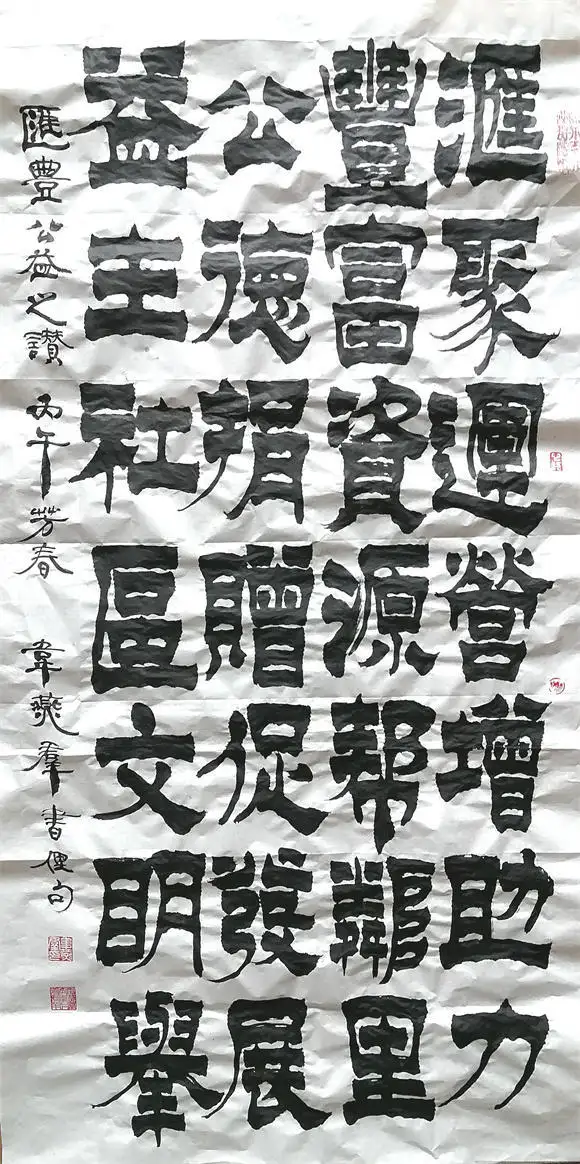 滙聚運營增助力
豐富資源帮鄰里
公德捐贈促發展
益主社區文明舉
匯豊公益之讃 丙午芳春 韋燕羣書俚句